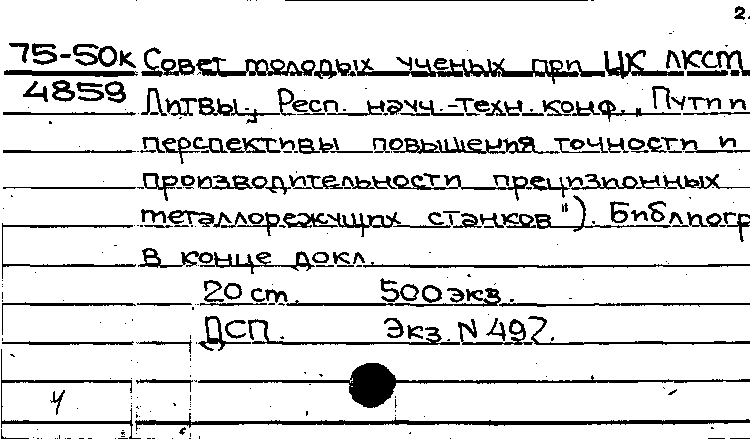 2.
75-50к Совет молодых ученых при ЦК ЛКСМ
4859 Литвы., Респ. науч.-техн. конф. „Пути и
перспективы повышения точности и
производительности прецизионных
металлорежущих станков"). Библиогр
в конце докл.
20 ст. 500 экз.
ДСП. Экз. N 497.
4